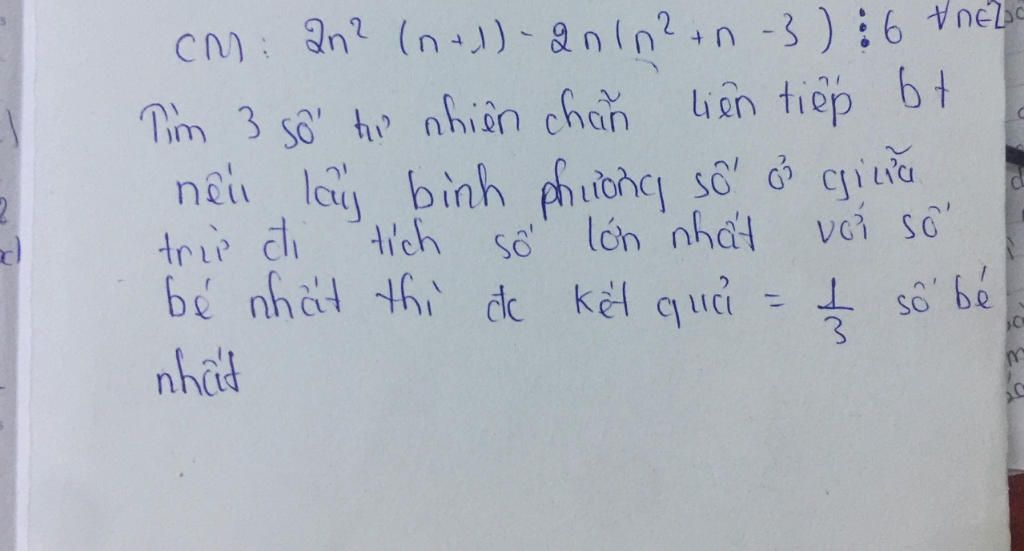 CM: 2n² (n+1) - 2n(n² + n - 3) ⋮ 6 ∀n∈Z
Tìm 3 số tự nhiên chẵn liên tiếp bt
nếu lấy bình phương số ở giữa
trừ đi tích số lớn nhất với số
bé nhất thì đc kết quả = 1/3 số bé
nhất